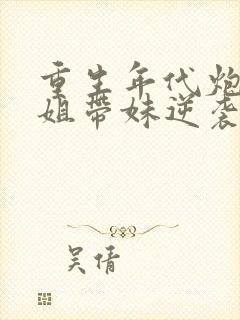 重生年代炮
姐带妹逆袭
吴倩